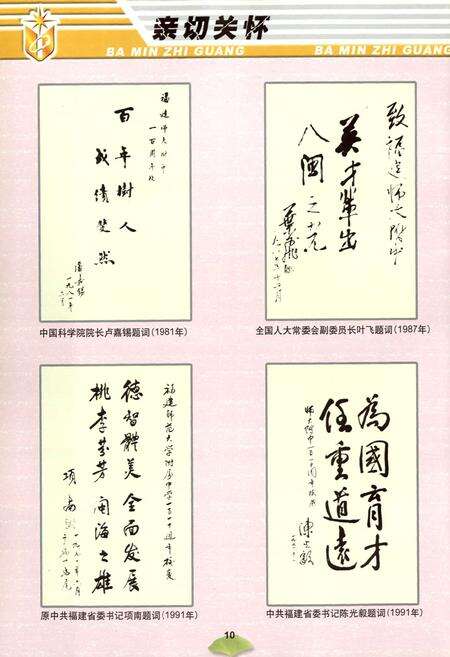 亲切关怀
BA MIN ZHI GUANG
BA MIN ZHI GUANG
福建师大附中
一百周年纪
百年樹人
成績斐然
盧嘉錫
一九八一年
中国科学院院长卢嘉锡题词(1981年)
致福建师大附中
英才輩出
八闽之光
葉飛
全国人大常委会副委员长叶飞题词(1987年)
福建師范大学附属中学一百一十週年校慶
德智體美全面发展
桃李芬芳闽海之雄
项南
原中共福建省委书记项南题词(1991年)
師大附中一百一十周年校庆
為國育才
任重道遠
陳光毅
中共福建省委书记陈光毅题词(1991年)
10